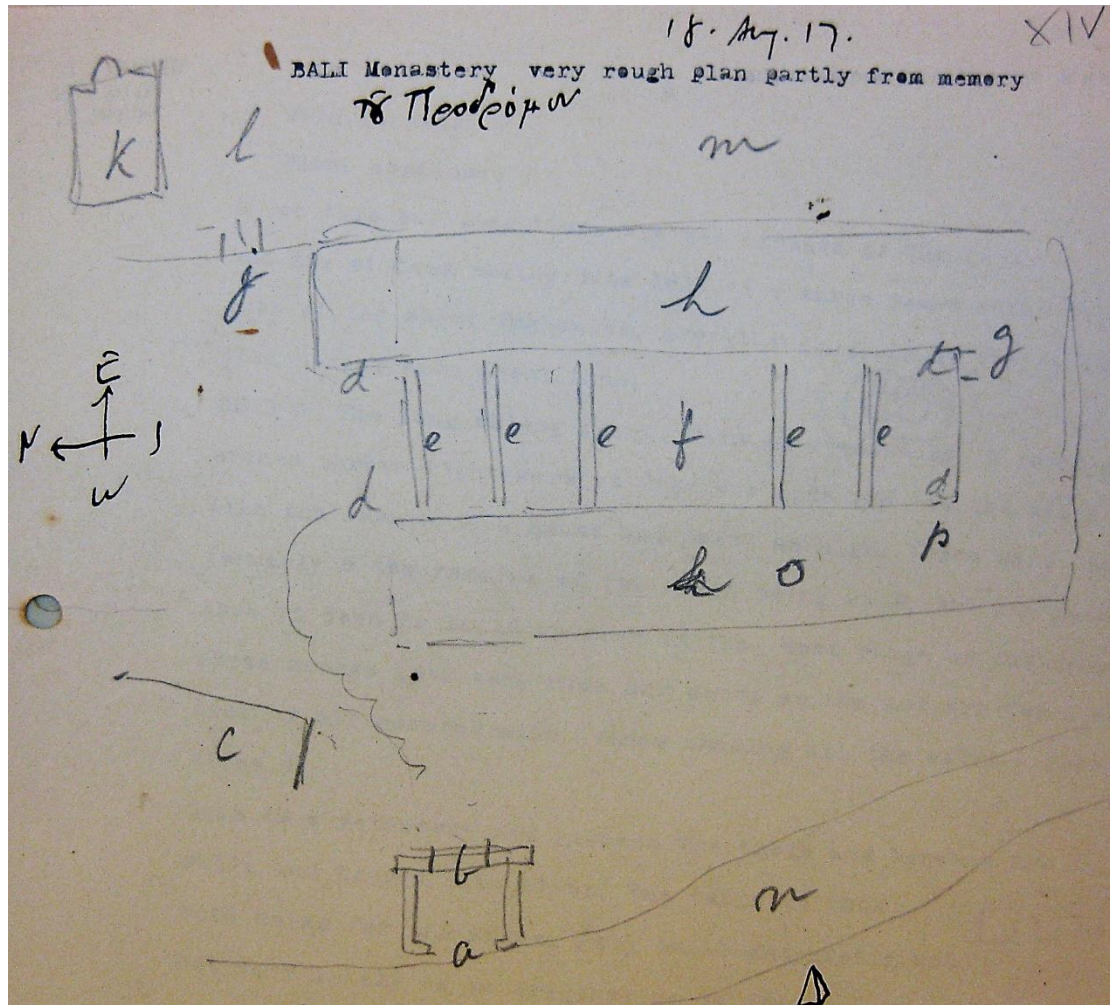 18. Aug. 17.
XIV
BALI Monastery very rough plan partly from memory
τȣ Προδρόμȣ
K l m
g h
d d g
E
N S
W
e e e f e e
d d
p
o
c
b
n
a